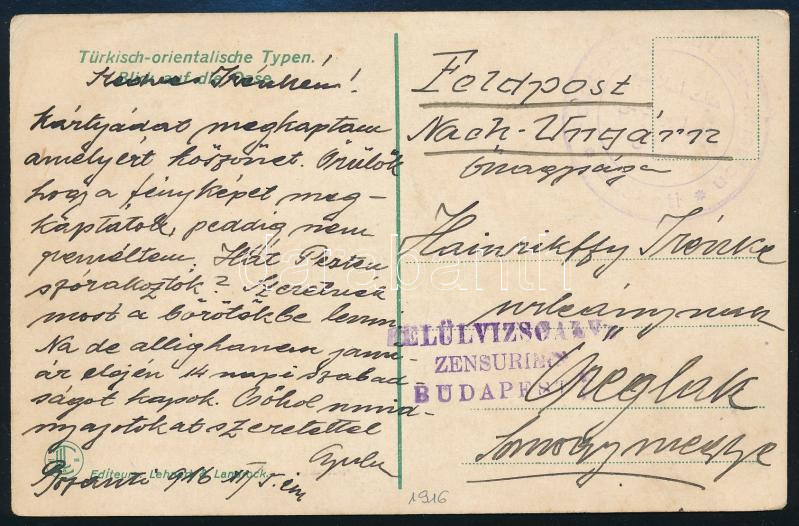 Türkisch-orientalische Typen.
Blick auf die Oase.
Kedves Irénkém!
Kártyádat megkaptam
amélyért köszönet. Örülök
hogy a fényképet meg-
kaptátok, peddig nem
reméltem. Hát Pesten
szórakoztok? Szeretnék
most a börötökbe lenni
Na de allighanem janu-
ár elején 14 napi szabad-
ságot kapok. Csókol mind-
nyajotokat szeretettel
Gyula
1916
Editeurs Lehnert & Landrock
Feldpost
Nach-Ungárn
Önagysága
Hainrikffy Irénke
urleánynak
Öreglak
Somogymegye
FELÜLVIZSGÁLVA
ZENSURIERT
BUDAPEST
1916
darabanth